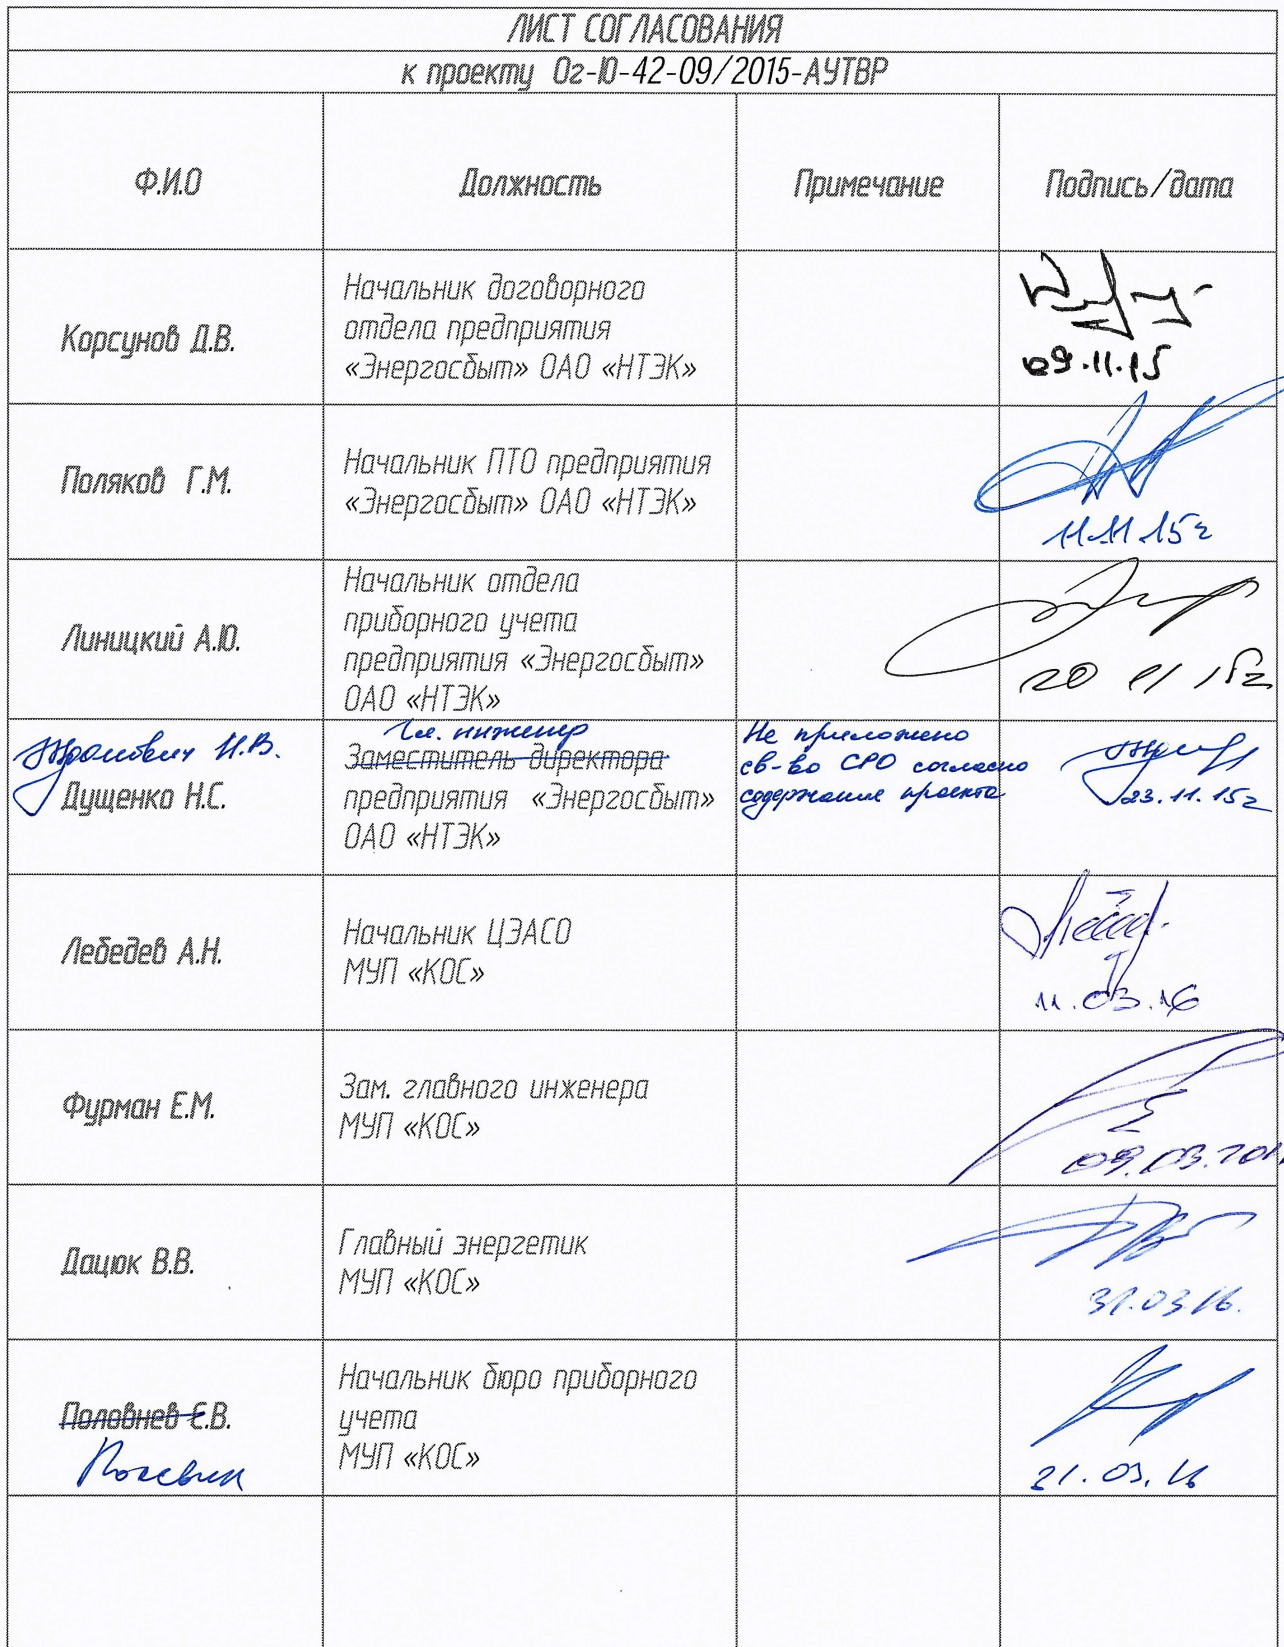 ЛИСТ СОГЛАСОВАНИЯ
к проекту Ог-Ю-42-09/2015-АУТВР
Ф.И.О
Должность
Примечание
Подпись/дата
Корсунов Д.В.
Начальник договорного
отдела предприятия
«Энергосбыт» ОАО «НТЭК»
09.11.15
Поляков Г.М.
Начальник ПТО предприятия
«Энергосбыт» ОАО «НТЭК»
11.11.15г
Линицкий А.Ю.
Начальник отдела
приборного учета
предприятия «Энергосбыт»
ОАО «НТЭК»
20 11 15г
Н.В.
Дущенко Н.С.
Гл. инженер
Заместитель директора
предприятия «Энергосбыт»
ОАО «НТЭК»
Не приложено
св-во СРО согласно
содержание проекта
23.11.15г
Лебедев А.Н.
Начальник ЦЭАСО
МУП «КОС»
11.03.16
Фурман Е.М.
Зам. главного инженера
МУП «КОС»
09.03.201
Дацюк В.В.
Главный энергетик
МУП «КОС»
31.03.16.
Половнев Е.В.
Начальник бюро приборного
учета
МУП «КОС»
21.03.16